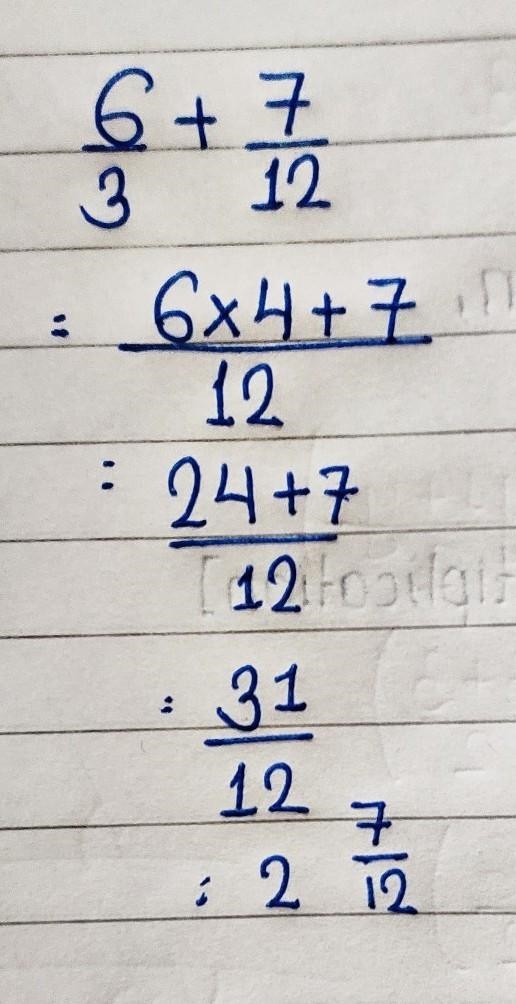 6/3 + 7/12
= 6×4+7/12
= 24+7/12
= 31/12
= 2 7/12